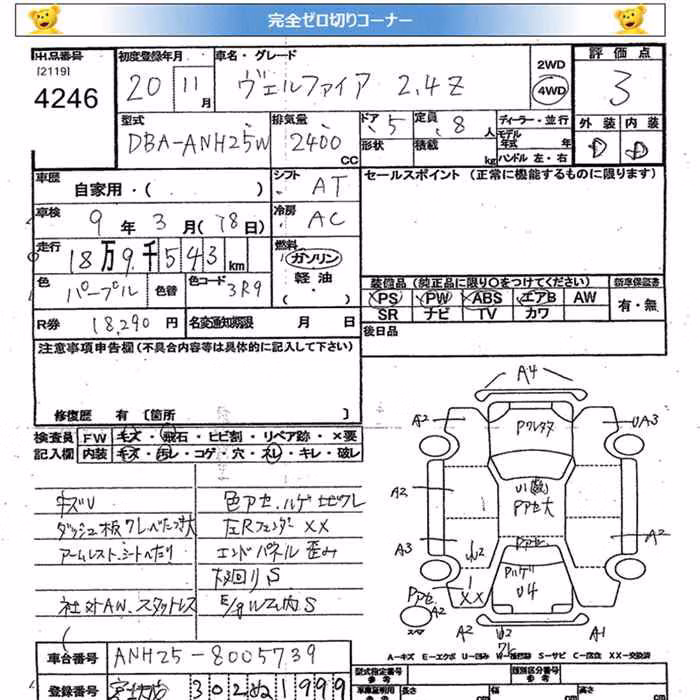 完全ゼロ切りコーナー
出品番号 初度登録年月 車名・グレード 2WD 評価点
[2119]
4246 20 11月 ヴェルファイア 2.4Z 4WD 3
型式 排気量 ドア 定員 ディーラー・並行 外装 内装
DBA-ANH25W 2400 CC 5 8人 モデル年式 年 D D
形状 積載 kg ハンドル 左・右
車歴 自家用・( ) シフト AT セールスポイント (正常に機能するものに限ります)
車検 9年3月(18日) 冷房 AC
走行 18万9千543km 燃料 ガソリン
軽油
( ・ )
色 パープル 色替 色コード 3R9 装備品(純正品に限り○をつけてください) 新車保証書
PS PW ABS エアB AW 有・無
SR ナビ TV カワ
R券 18,290円 名変通知期限 月 日 後日品
注意事項申告欄(不具合内容等は具体的に記入して下さい)
修復歴 有 〔箇所 〕
検査員 FW キズ・飛石・ヒビ割・リペア跡・×要
記入欄 内装 キズ・汚レ・コゲ・穴・スレ・キレ・破レ
キズU 色アセ、ハゲ
ダッシュ板ワレベタつき大 左RフェンダーXX
アームレスト、シートへたり エンドパネル歪み
下廻りS
社外AW、スタッドレス E/gルーム内S
A4
A2 Pワレタタ UA3
A2 Pアセ大 A2
A3 Pアセ
XX Pハゲ U4
Pアセ A2
A2 A1
A=キズ E=エクボ U=凹み S=サビ C=腐蝕 XX=交換済
車台番号 ANH25-8005739
型式指定番号 参考 類別区分番号 参考
登録番号 302 ぬ 1999
車庫証明用 参考 長さ cm 幅 cm 高さ cm